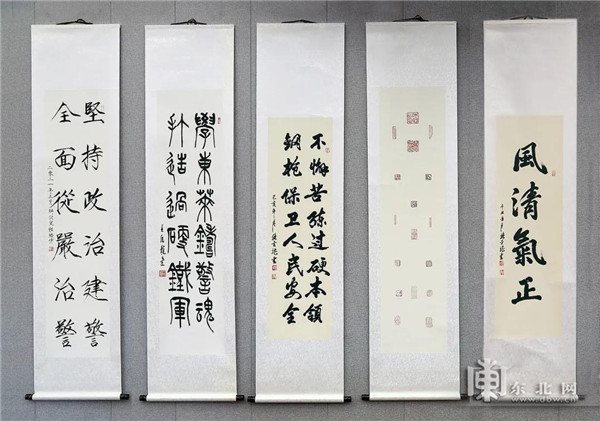 堅持政治建警
全面從嚴治警
學東萊鑄警魂
打造過硬鐵軍
不懈苦练过硬本领
钢枪保卫人民安全
風清氣正
东北网
www.dbw.cn